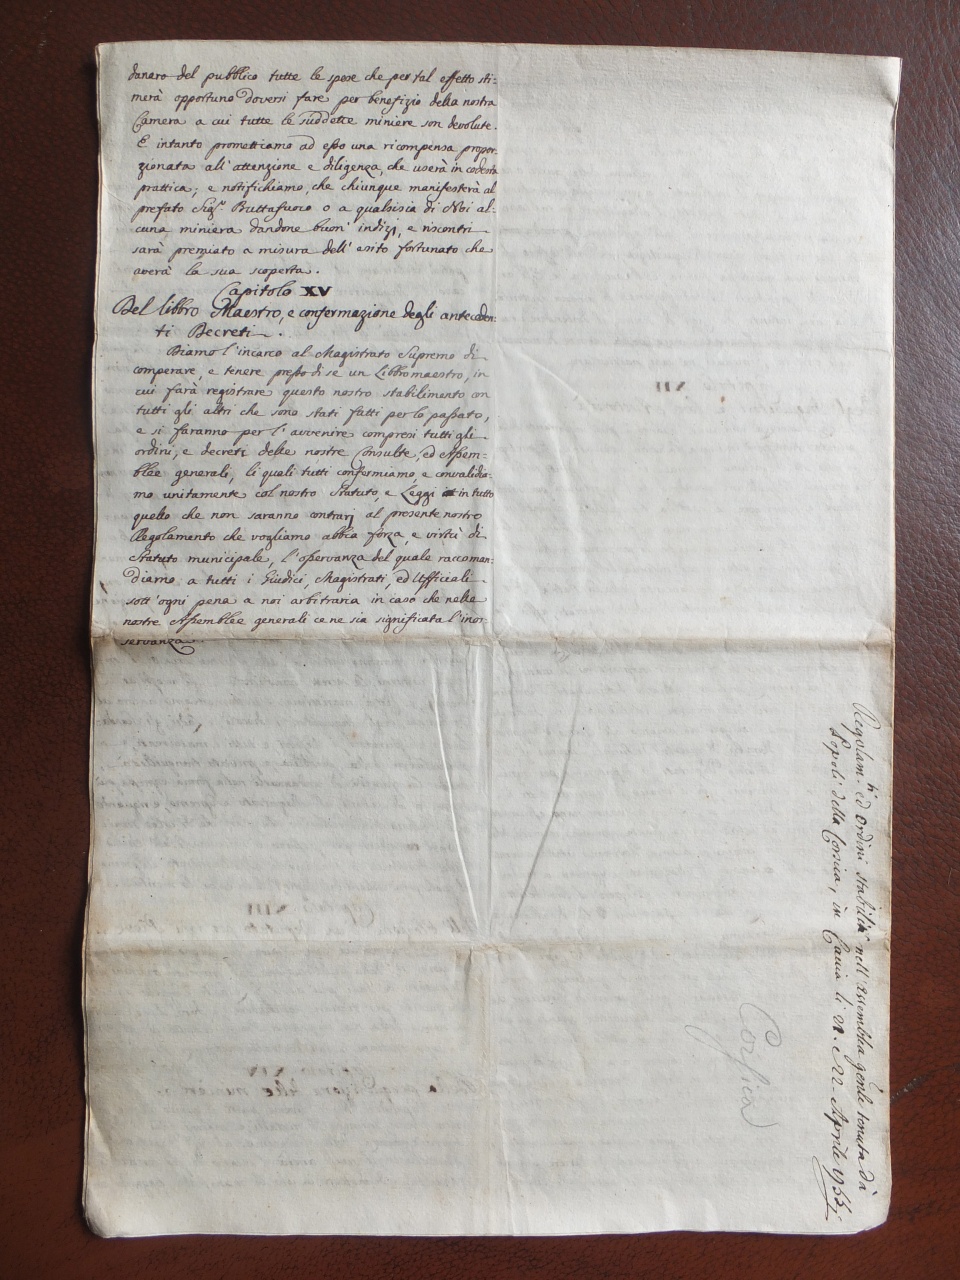 danaro del pubblico tutte le spese che per tal effetto sti=
merà opportuno doversi fare per benefizio della nostra
Camera a cui tutte le suddette miniere son devolute.
E intanto promettiamo ad esso una ricompensa propor=
zionata all' attenzione e diligenza, che userà in codesta
prattica; e notifichiamo, che chiunque manifesterà al
prefato Sigr. Buttafuoco o a qualsisia di Noi al=
cuna miniera dandone buon' indizj, e riscontri
sarà premiato a misura dell' esito fortunato che
averà la sua scoperta.
Capitolo XV
Del libbro Maestro, e confermazione degli anteceden=
ti Decreti.
Diamo l'incarco al Magistrato Supremo di
comperare, e tenere presso di se un Libbro maestro, in
cui farà registrare questo nostro stabilimento con
tutti gli altri che sono stati fatti per lo passato,
e si faranno per l'avvenire compresi tutti gli
ordini, e decreti delle nostre Consulte, ed Assem=
blee generali, li quali tutti confermiamo, e convalidia=
mo unitamente col nostro Statuto, e Leggi in tutto
quello che non saranno contrarj al presente nostro
Regolamento che vogliamo abbia forza, e virtù di
Statuto municipale, l'osservanza del quale raccoman=
diamo a tutti i Giudici, Magistrati, ed Ufficiali
sott' ogni pena a noi arbitraria in caso che nelle
nostre Assemblee generali ce ne sia significata l'inos=
servanza.
Regolam.ti ed Ordini stabiliti nell' Assemblea genle tenuta dà
Popoli della Corsica, in li Aprile
Corsica